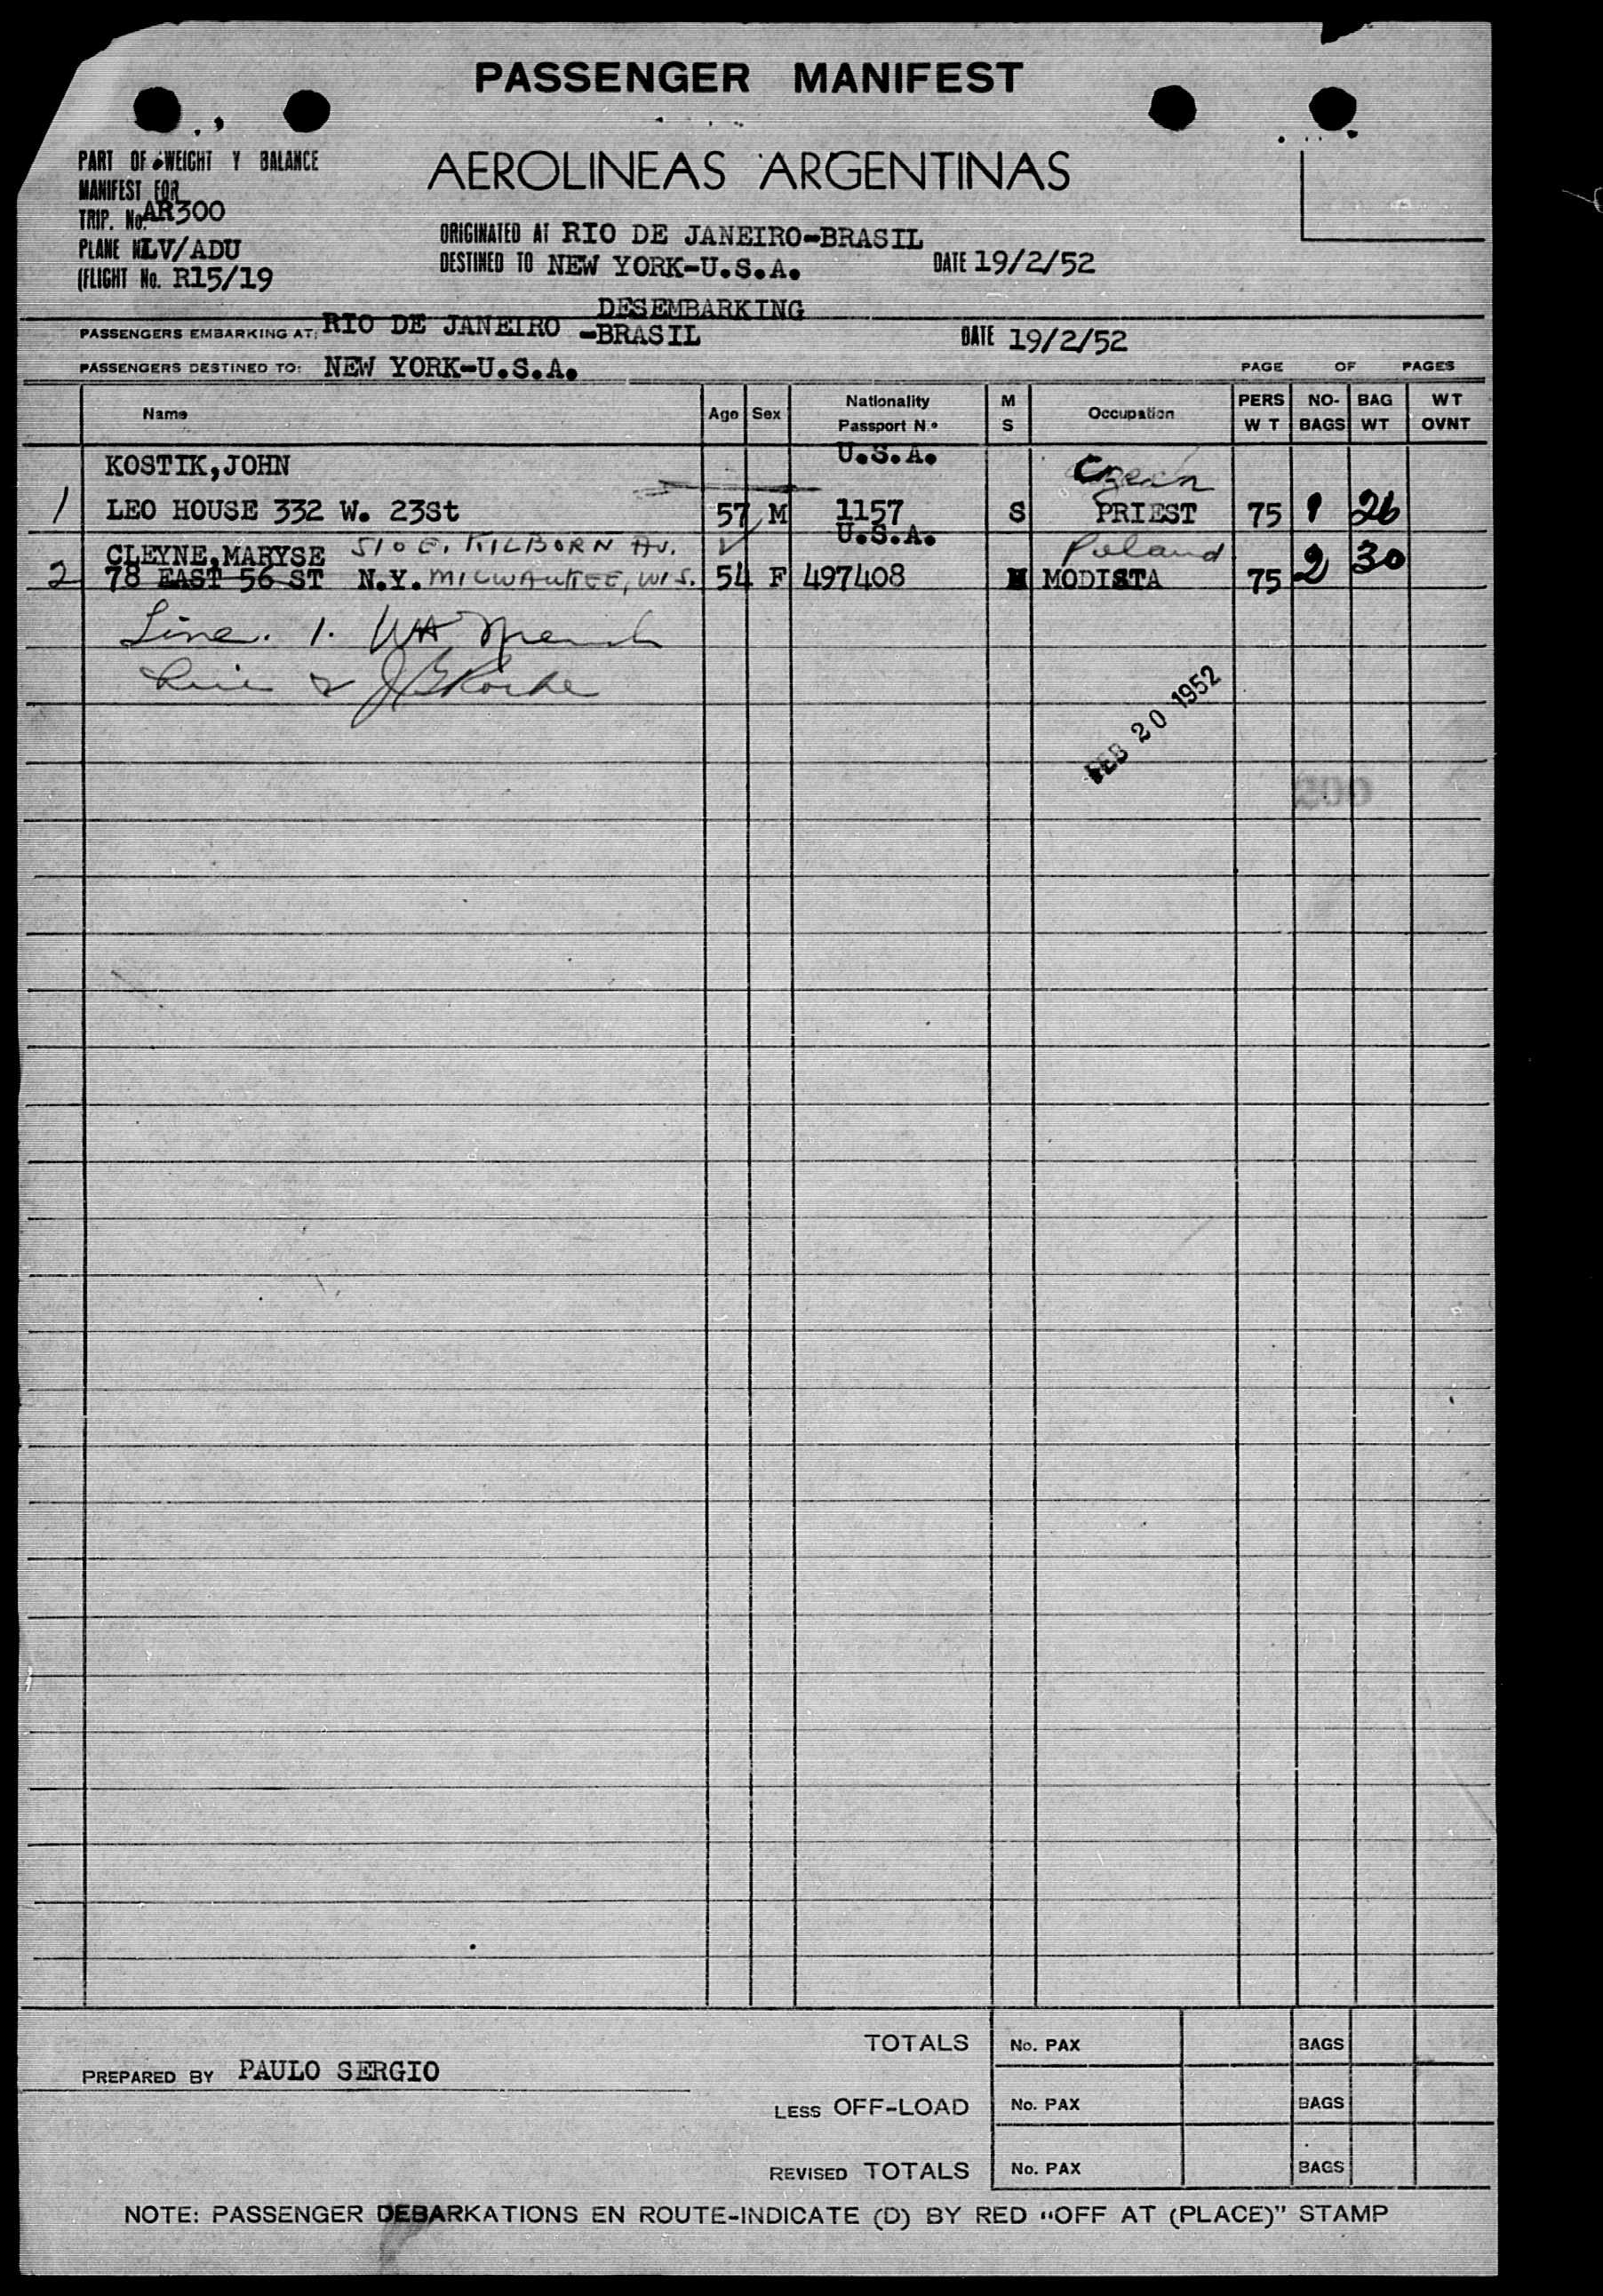 PASSENGER MANIFEST
PART OF WEIGHT Y BALANCE
MANIFEST FOR
TRIP. No. AR300
PLANE N LV/ADU
(FLIGHT No. R15/19
AEROLINEAS ARGENTINAS
ORIGINATED AT RIO DE JANEIRO-BRASIL
DESTINED TO NEW YORK-U.S.A. DATE 19/2/52
DESEMBARKING
PASSENGERS EMBARKING AT: RIO DE JANEIRO -BRASIL DATE 19/2/52
PASSENGERS DESTINED TO: NEW YORK-U.S.A. PAGE OF PAGES
Name Age Sex Nationality Passport N.º M S Occupation PERS W T NO- BAGS BAG WT WT OVNT
KOSTIK,JOHN U.S.A. Czech
1 LEO HOUSE 332 W. 23St 57 M 1157 S PRIEST 75 1 26
CLEYNE,MARYSE 510 E. KILBORN AV. U.S.A. Poland
2 78 EAST 56 ST N.Y. MILWAUKEE, WIS. 54 F 497408 M MODISTA 75 2 30
Line. 1. WA
Line 2
FEB 20 1952
PREPARED BY PAULO SERGIO
TOTALS No. PAX BAGS
LESS OFF-LOAD No. PAX BAGS
REVISED TOTALS No. PAX BAGS
NOTE: PASSENGER DEBARKATIONS EN ROUTE-INDICATE (D) BY RED "OFF AT (PLACE)" STAMP